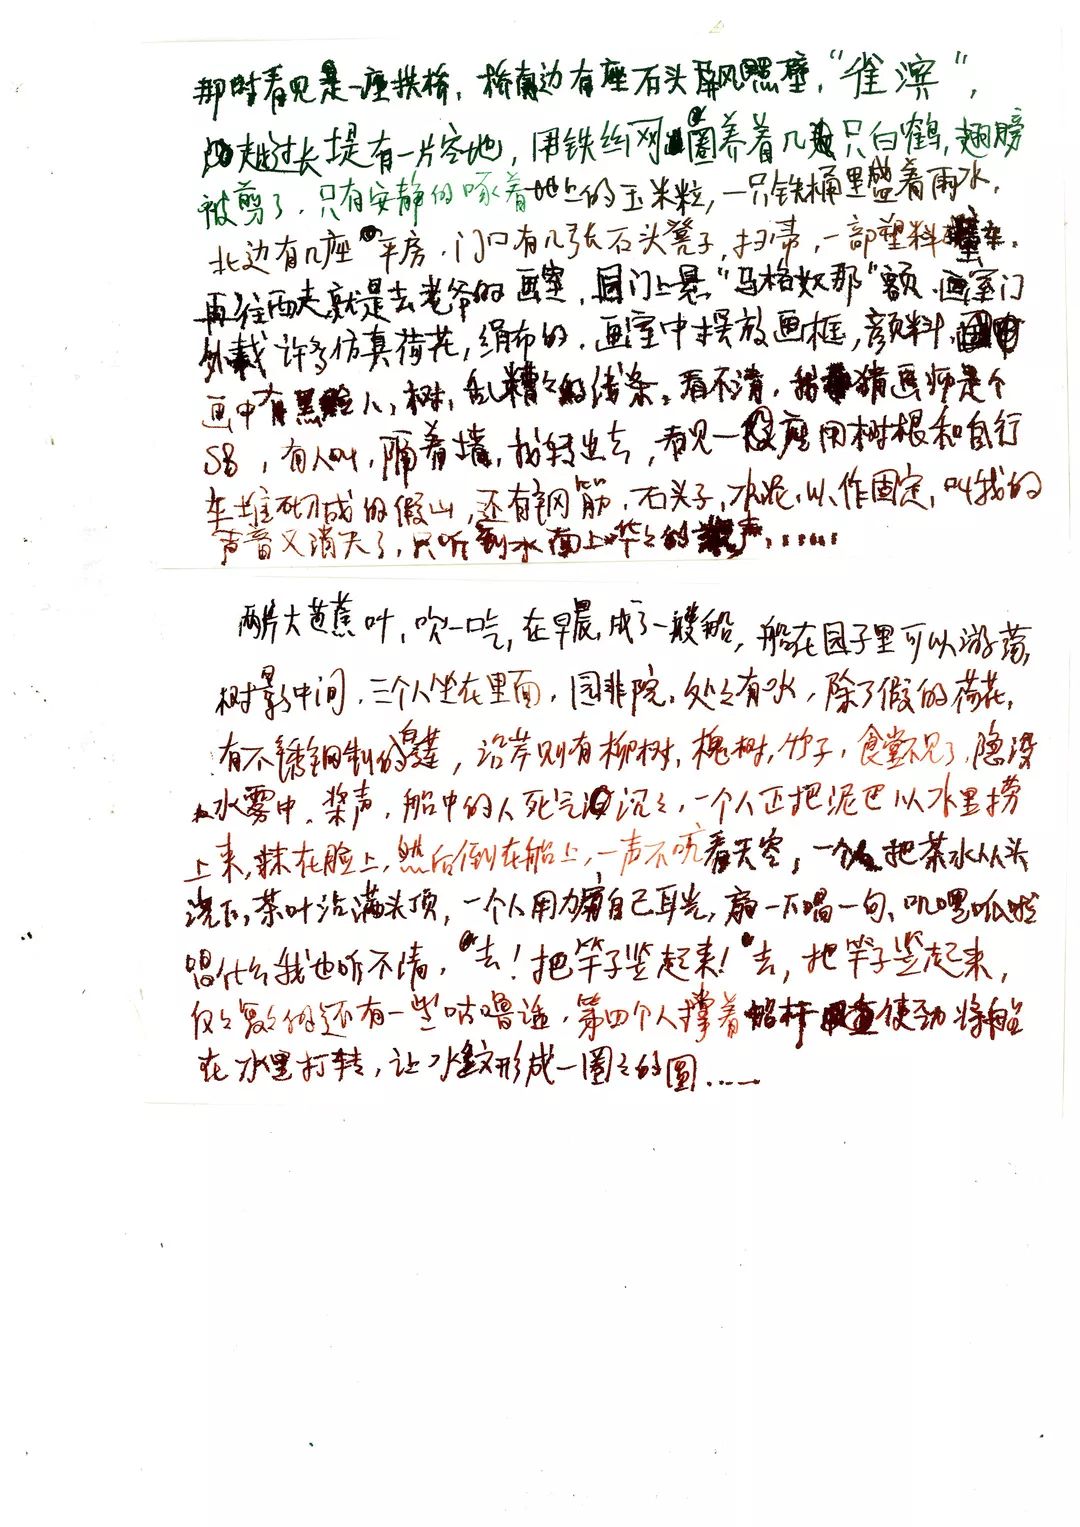 那时看见是一座拱桥，桥南边有座石头屏风照壁，“雀滨”，
走过长堤有一片空地，用铁丝网圈养着几只白鹤，翅膀
被剪了，只有安静的啄着地上的玉米粒，一只铁桶里盛着雨水，
北边有几座平房，门口有几张石头凳子，扫帚，一部塑料童车。
再往西走就是去老爷的画室，门上悬“马格奴那”额，画室门
外栽许多仿真荷花，绢布的，画室中摆放画框，颜料，
画中有黑脸人，树，乱糟糟的线条，看不清，我猜画师是个
SB，有人叫，隔着墙，我转过去，看见一座用树根和自行
车堆砌成的假山，还有钢筋，石头子，水泥，以作固定，叫我的
声音又消失了，只听到水面上哗哗的声……
两片大芭蕉叶，吹一口气，在早晨，成了一艘船，船在园子里可以游荡，
树影中间，三个人坐在里面，园非院，处处有水，除了假的荷花，
有不锈钢制的白莲，沿岸则有柳树，槐树，竹子，食堂不见了，隐没
水雾中，桨声，船中的人死气沉沉，一个人正把泥巴从水里捞
上来，抹在脸上，然后倒在船上，一声不吭看天空，一个人把茶水从头
浇下，茶叶沾满头顶，一个人用力扇自己耳光，扇一下唱一句，叽哩呱啦
唱什么我也听不清，“去！把竿子竖起来！”去，把竿子竖起来，
反反复复的还有一些咕噜话，第四个人撑着船杆使劲将船
在水里打转，让水纹形成一圈圈的圆……